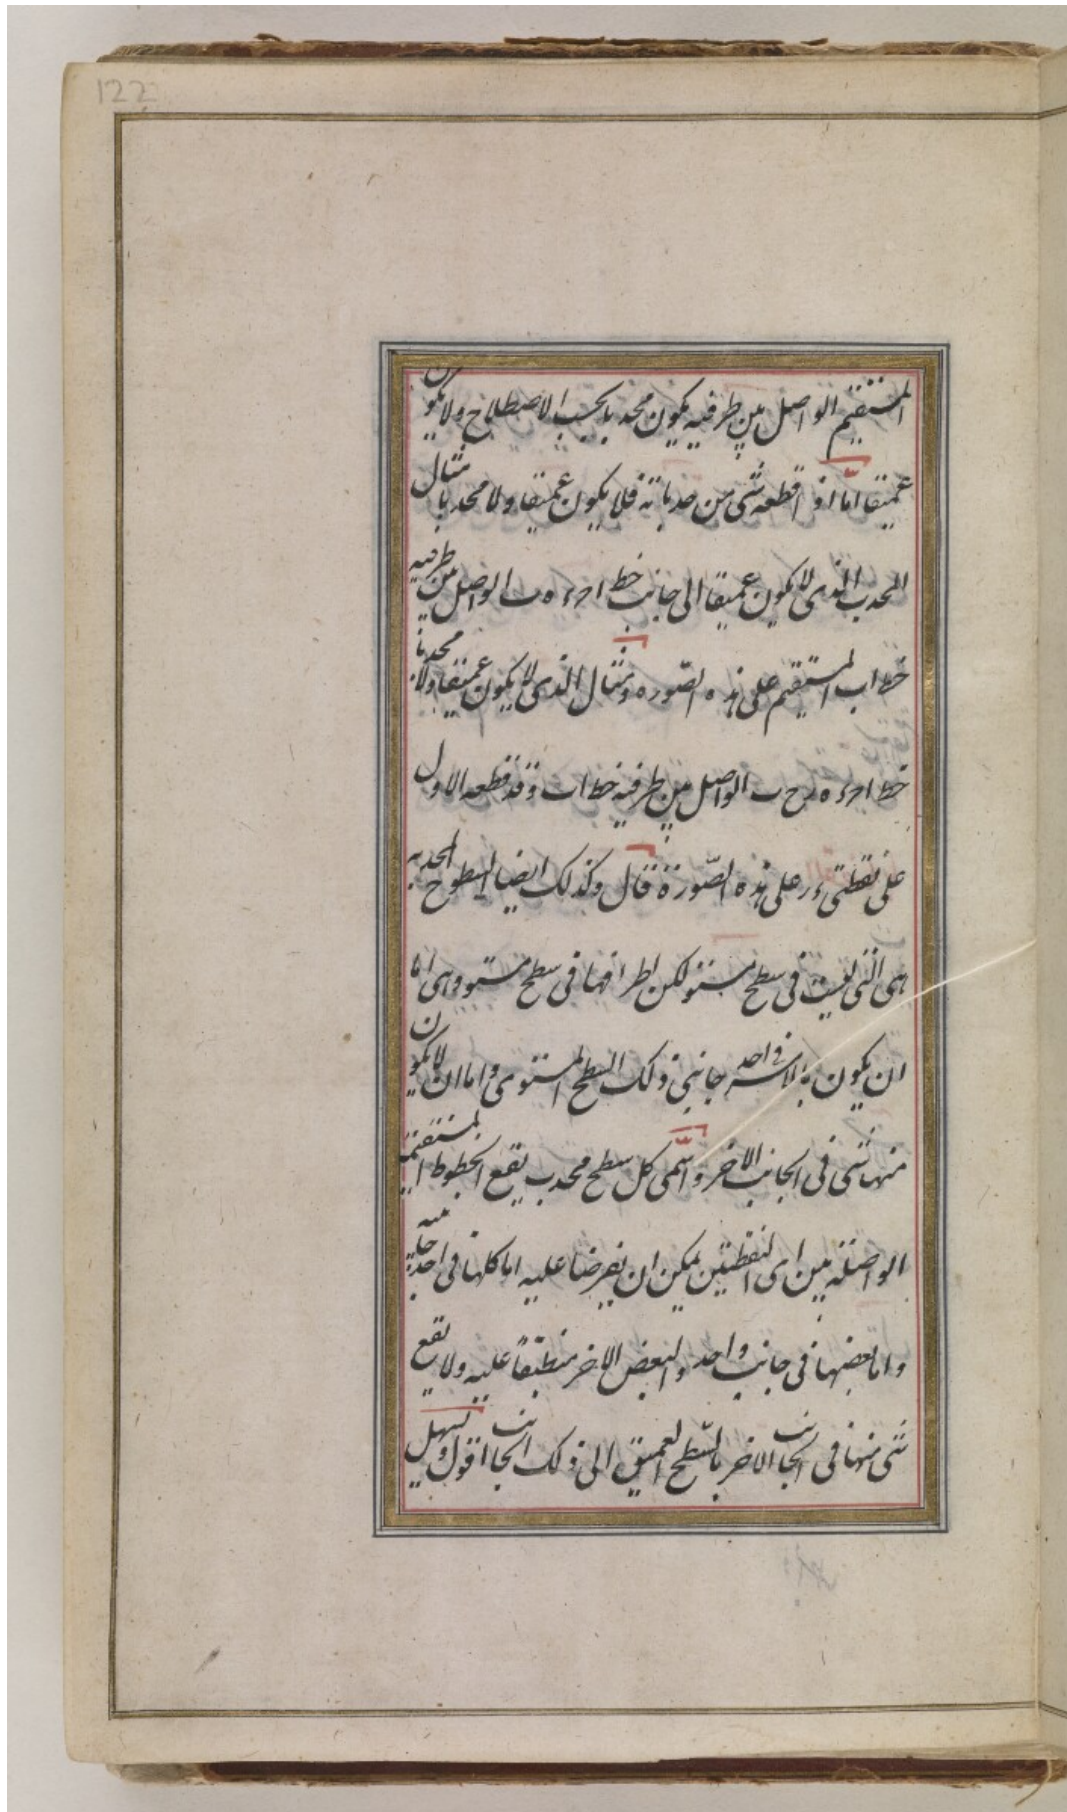 122
المستقيم الواصل بين طرفيه يكون محدبا بحسب الاصطلاح ولا يكون
عميقا امّا اذا قطعه شى من حدباته فلا يكون عميقا ولا محدبا مثال
المحدب الذى لا يكون عميقا الى جانب خط ا ح ء ه ب الواصل بين طرفيه
خط اب المستقيم على هذه الصّوره ومثال الذى لا يكون عميقا ولا محدبا
خط ا ح ء ه ر ح ب الواصل بين طرفيه خط ا ب وقد قطعه الاول
على نقطتى ء ر على هذه الصّورة قال وكذلك ايضا السطوح المحدبه
هى التى ليست فى سطح مستو لكن اطرافها فى سطح مستو وهى اما
ان يكون بالاسر فى احد جانبى ذلك السطح المستوى واما ان لا يكون
منها شى فى الجانب الاخر واسّمى كل سطح محدب يقع الخطوط المستقيمة
الواصلة بين اى النقطتين يمكن ان يفرضا عليه اما كلها فى احد جانبيه
واما بعضها فى جانب واحد والبعض الاخر منطبّقاً عليه ولا يقع
شى منها فى الجانب الاخر بالسّطح العميق الى ذلك الجانب اقول وتسهيل